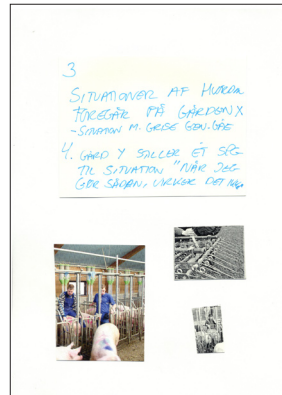 3
SITUATIONER AF HVORDAN
FOREGÅR PÅ GÅRDEN X
- SITUATION M. GRISE
4. GÅRD Y STILLER ET SPG
TIL SITUATION "NÅR JEG
GØR SÅDAN, VIRKER DET